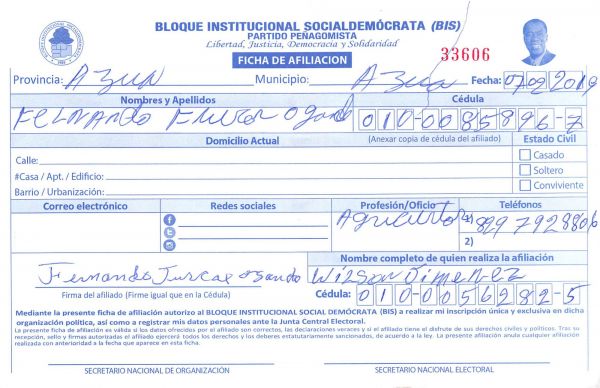 BLOQUE INSTITUCIONAL SOCIALDEMÓCRATA (BIS)
PARTIDO PEÑAGOMISTA
Libertad, Justicia, Democracia y Solidaridad
FICHA DE AFILIACION
33606
Provincia: Azua Municipio: Azua Fecha: 07 02 2019
Nombres y Apellidos Cédula
Fernando 010-0085896-7
Domicilio Actual (Anexar copia de cédula del afiliado) Estado Civil
Calle: Casado
#Casa / Apt. / Edificio: Soltero
Barrio / Urbanización: Conviviente
Correo electrónico Redes sociales Profesión/Oficio Teléfonos
Agricultor 1) 829 792 8806
2)
Nombre completo de quien realiza la afiliación
Fernando Wilson Jimenez
Firma del afiliado (Firme igual que en la Cédula) Cédula: 010-0056282-5
Mediante la presente ficha de afiliación autorizo al BLOQUE INSTITUCIONAL SOCIAL DEMÓCRATA (BIS) a realizar mi inscripción única y exclusiva en dicha
organización política, así como a registrar mis datos personales ante la Junta Central Electoral.
La presente ficha de afiliación es válida si los datos ofrecidos por el afiliado son correctos, las declaraciones veraces y si el afiliado tiene el disfrute de sus derechos civiles y políticos. Tras su
recepción, sello y firmas autorizadas el afiliado ejercerá todos los derechos y los deberes estatutariamente sancionados, de acuerdo a la ley. La presente afiliación anula cualquier afiliación
realizada con anterioridad a la fecha que aparece en esta ficha.
SECRETARIO NACIONAL DE ORGANIZACIÓN SECRETARIO NACIONAL ELECTORAL